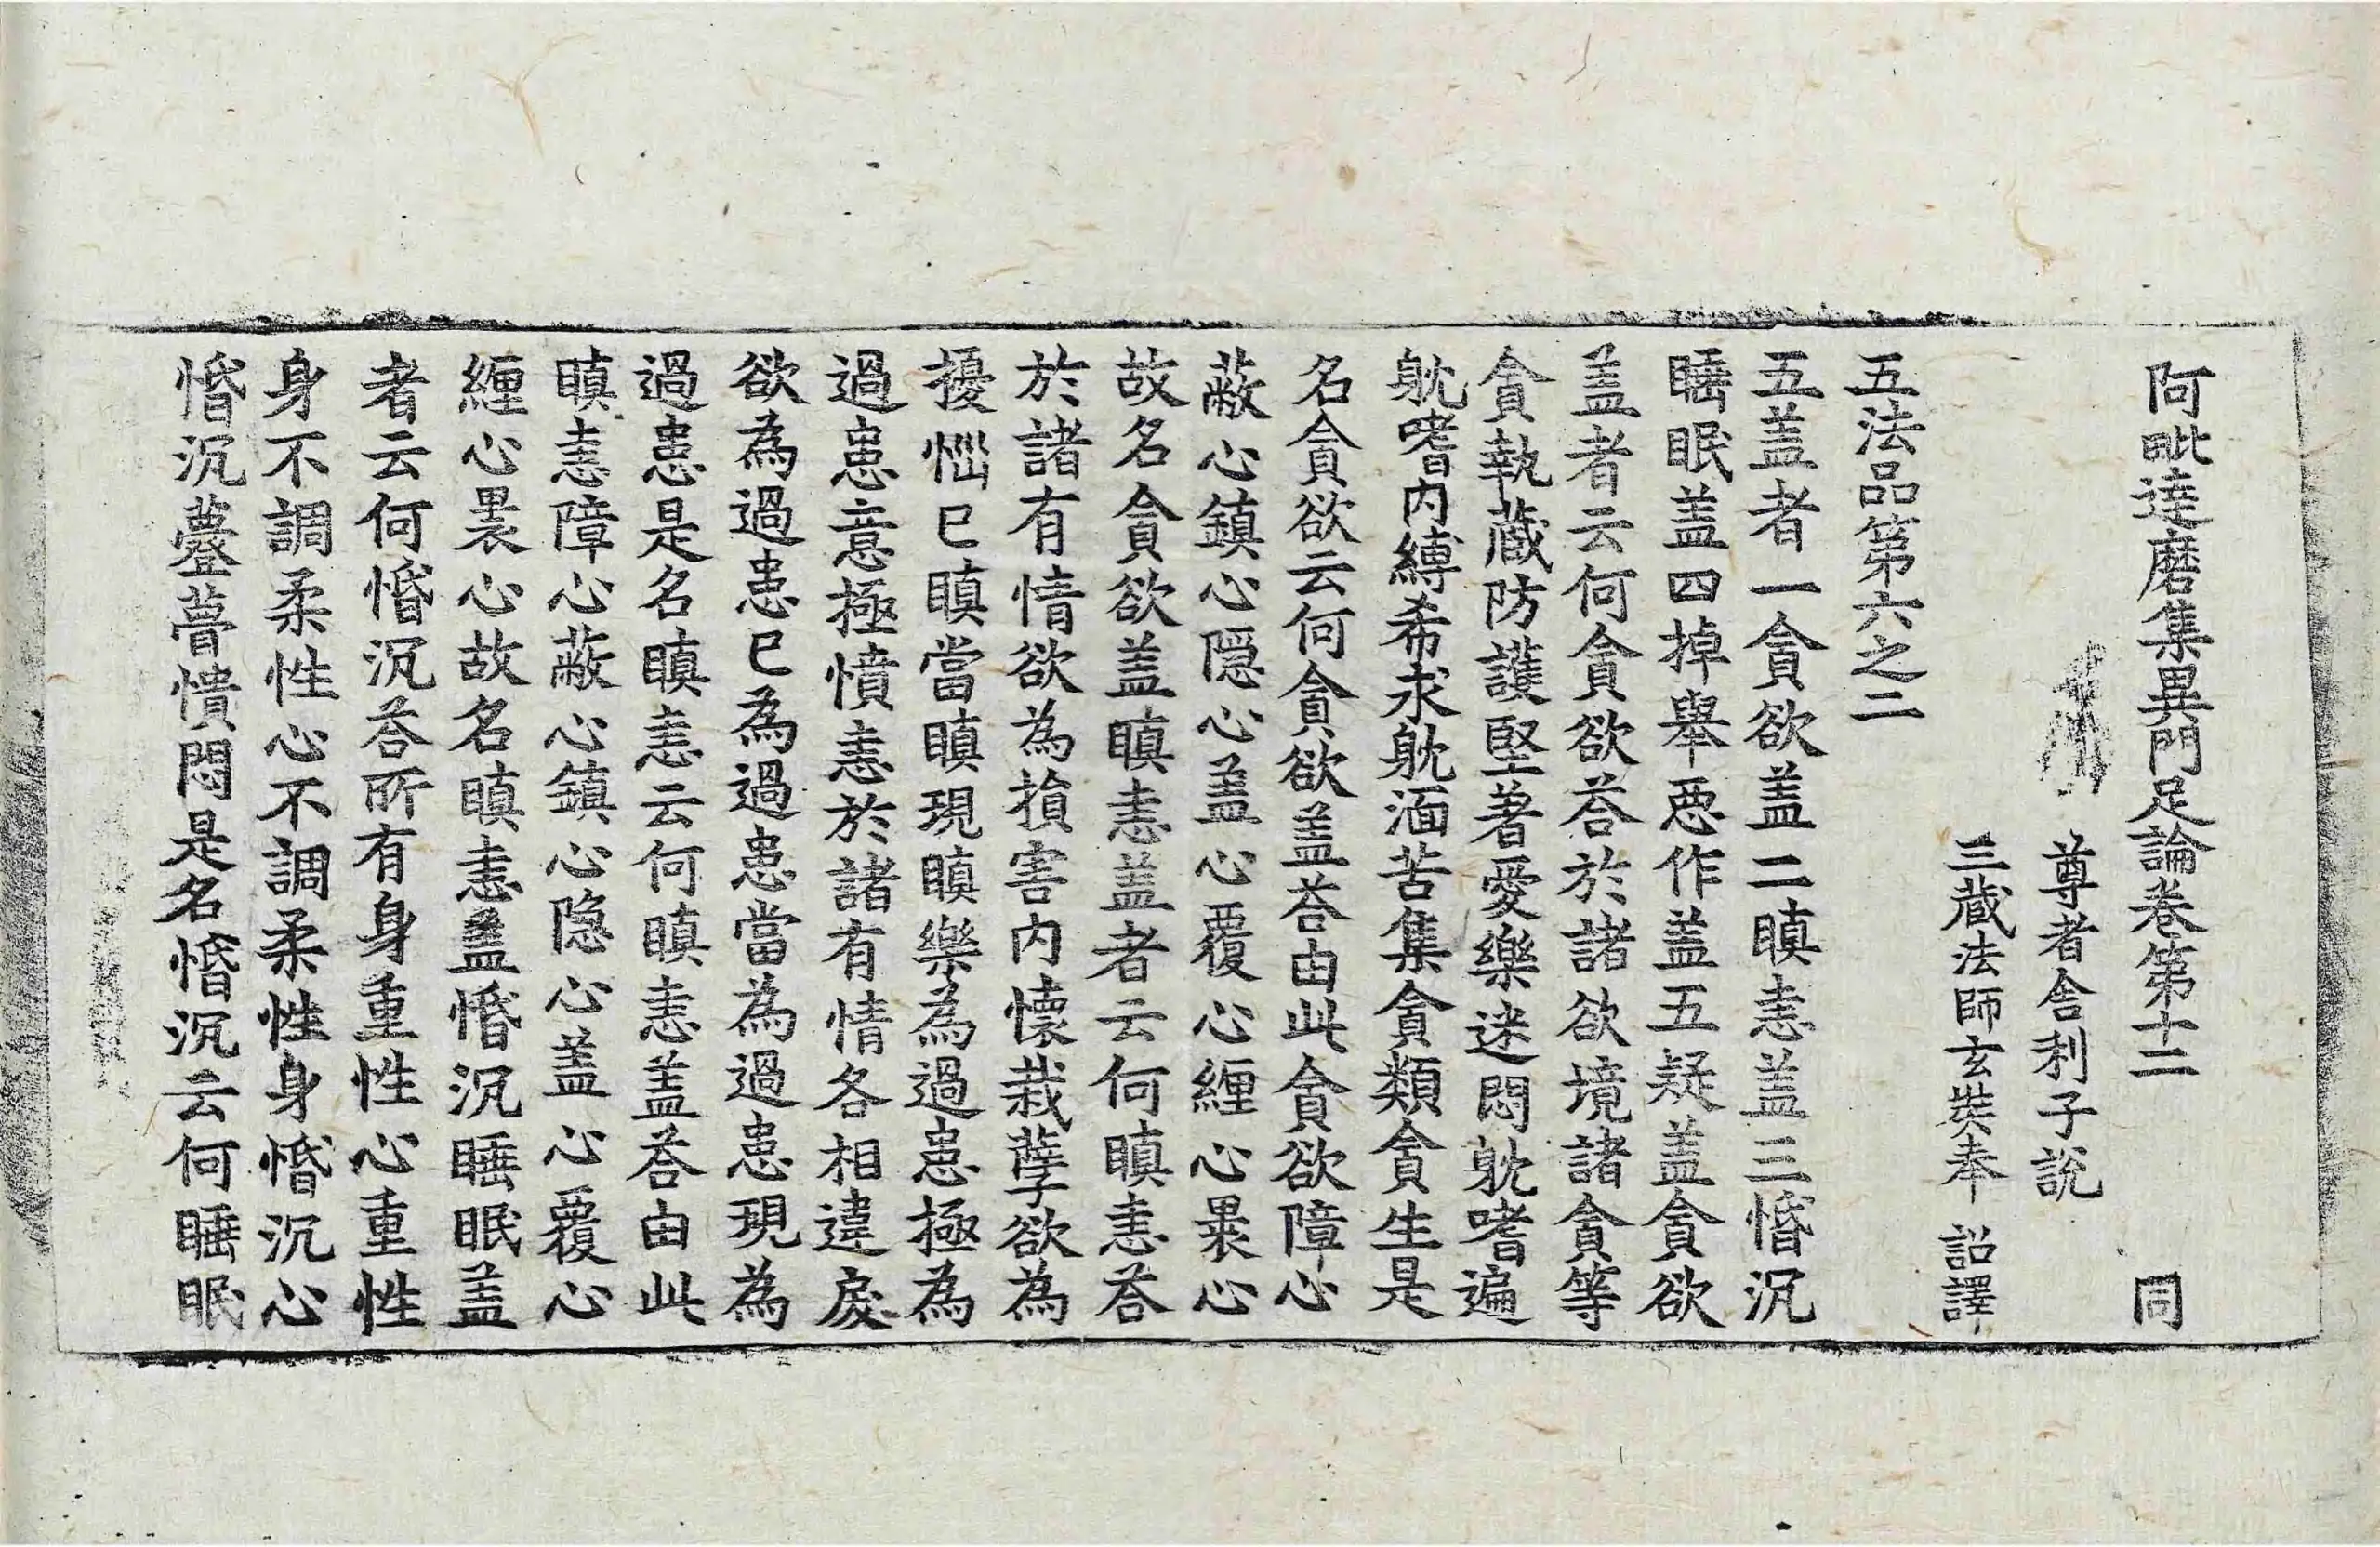 阿毗達磨集異門足論卷第十二 同
尊者舍利子說
三藏法師玄奘奉 詔譯
五法品第六之二
五盖者一貪欲盖二瞋恚盖三惛沉
睡眠盖四掉舉惡作盖五疑盖貪欲
盖者云何貪欲荅於諸欲境諸貪等
貪執藏防護堅著愛樂迷悶躭嗜遍
躭嗜內縛希求躭湎苦集貪類貪生是
名貪欲云何貪欲盖荅由此貪欲障心
蔽心鎮心隱心盖心覆心纏心褁心
故名貪欲盖瞋恚盖者云何瞋恚荅
於諸有情欲為損害內懷栽孽欲為
擾惱已瞋當瞋現瞋樂為過患極為
過患意極憤恚於諸有情各相違戾
欲為過患已為過患當為過患現為
過患是名瞋恚云何瞋恚盖荅由此
瞋恚障心蔽心鎮心隱心盖心覆心
纏心褁心故名瞋恚盖惛沉睡眠盖
者云何惛沉荅所有身重性心重性
身不調柔性心不調柔性身惛沉心
惛沉瞢憒悶是名惛沉云何睡眠